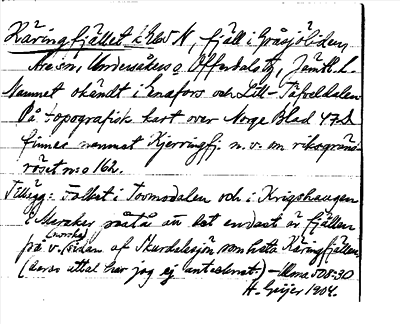 Käringfjället i Elev N, fjäll i Gråsjöliden,
Åre sn, Undersåkers o Offerdals tg, Jämtl. l.
Namnet okändt i Enafors och Lill-Täfveldalen
På topografisk kart over Norge Blad 47 D
finnes namnet Kjerringfj. n. v. om riksgräns-
röset n:o 162.
Tillägg: Folket i Tovmodalen och i Krigshaugen
i Meraker påstå att det endast är fjällen
(norska)
på v. sidan af Skurdalssjön som heta Käringfjällen
(deras uttal har jag ej antecknat.) – 508:30
H. Geijer 1904.